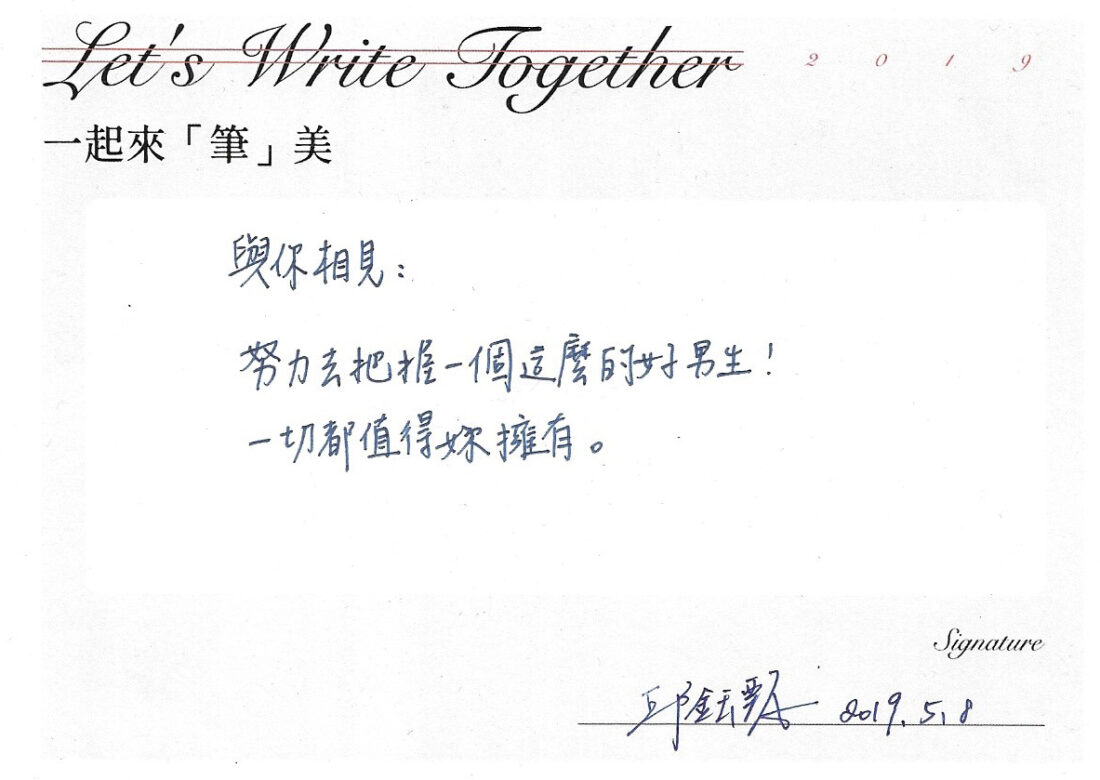 Let's Write Together 2019
一起來「筆」美
與你相見：
努力去把握一個這麼的好男生！
一切都值得妳擁有。
Signature
邱鈺 2019.5.8